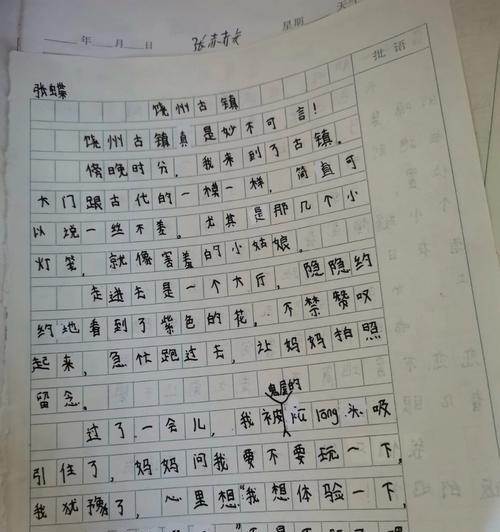 年 月 日 星期 天气
批语
张蝶
饶州古镇
饶州古镇真是妙不可言！
傍晚时分，我来到了古镇。
大门跟古代的一模一样，简直可
以说一丝不差。尤其是那几个小
灯笼，就像害羞的小姑娘。
走进去是一个大厅，隐隐约
约地看到了紫色的花，不禁赞叹
起来，急忙跑过去，让妈妈拍照
留念。
鬼屋的
过了一会儿，我被kū lóng头吸
引住了，妈妈问我要不要玩一下，
我犹豫了，心里想“我想体验一下，